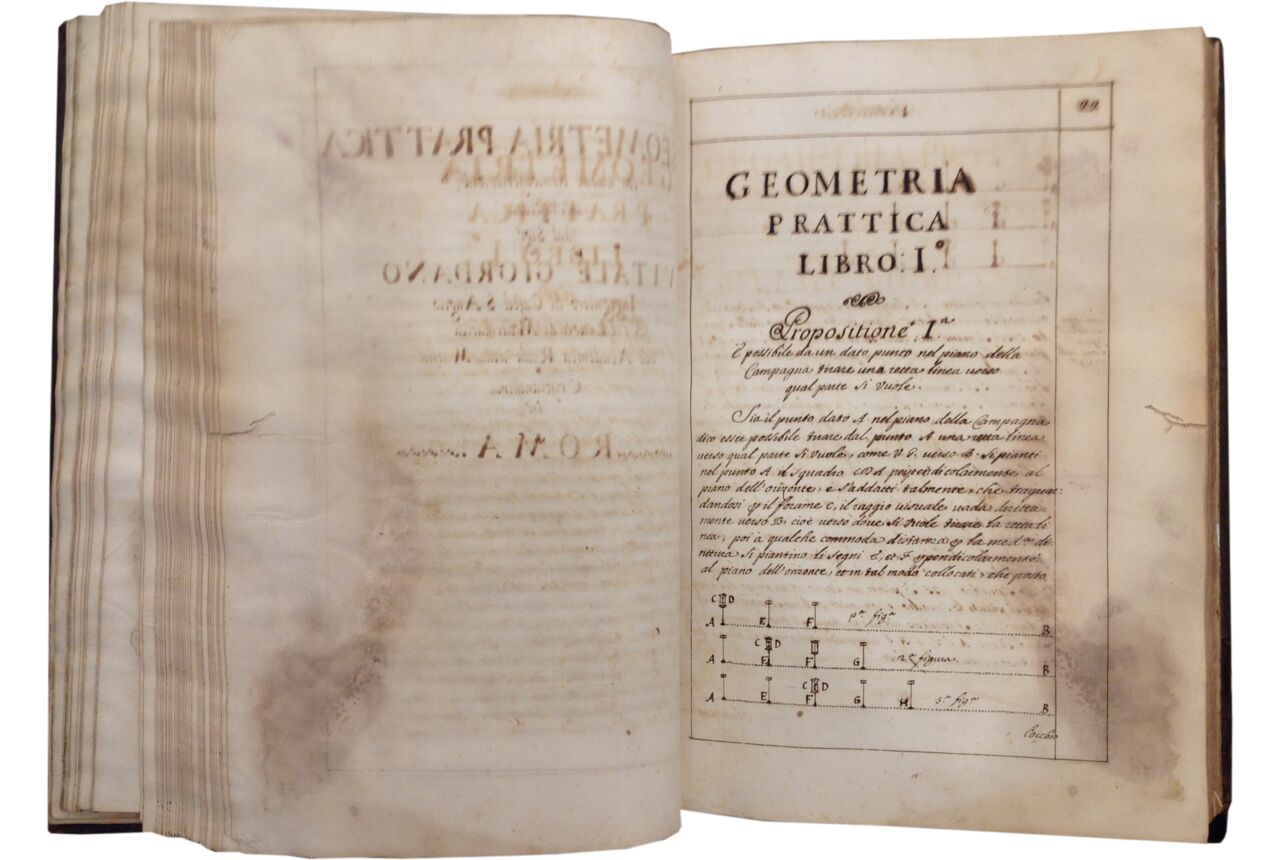 22
GEOMETRIA
PRATTICA
LIBRO. I.º
Propositione I.ª
È possibile da un dato punto nel piano della
Campagna tirare una retta linea verso
qual parte si vuole.
Sia il punto dato A nel piano della Campagna
dico esser possibile tirare dal punto A una retta linea
verso qual parte si vuole, come V. G. verso B. Si pianti
nel punto A il squadro CDA perpendicolarmente al
piano dell'orizonte, e s'addatti talmente, che traguar-
dandosi il forame C, il raggio visuale vada diretta-
mente verso B, cioè verso dove si vuole tirare la retta li
nea; poi à qualche commoda distanza la med.ma di-
rittura si piantino li segni E, et F perpendicolarmente
al piano dell'orizonte, et in tal modo collocati, che posto
C D
A E F p.ª fig.ª B
C D
A E F G 2.ª figura B
C D
A E F G H 3.ª fig.ª B
l'occhio
GEOMETRIA PRATTICA
VITALE GIORDANO
ROMA